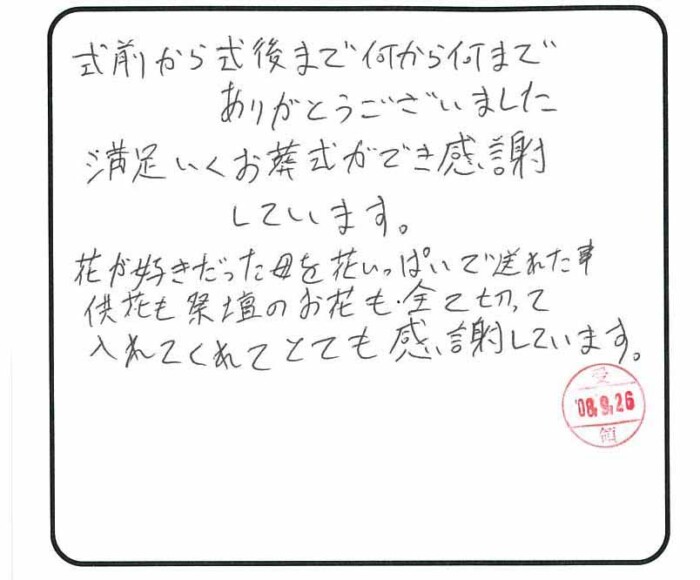 式前から式後まで何から何まで
ありがとうございました
満足いくお葬式ができ感謝
しています。
花が好きだった母を花いっぱいで送れた事
供花も祭壇のお花も全て切って
入れてくれてとても感謝しています。
受
'08.9.26
領